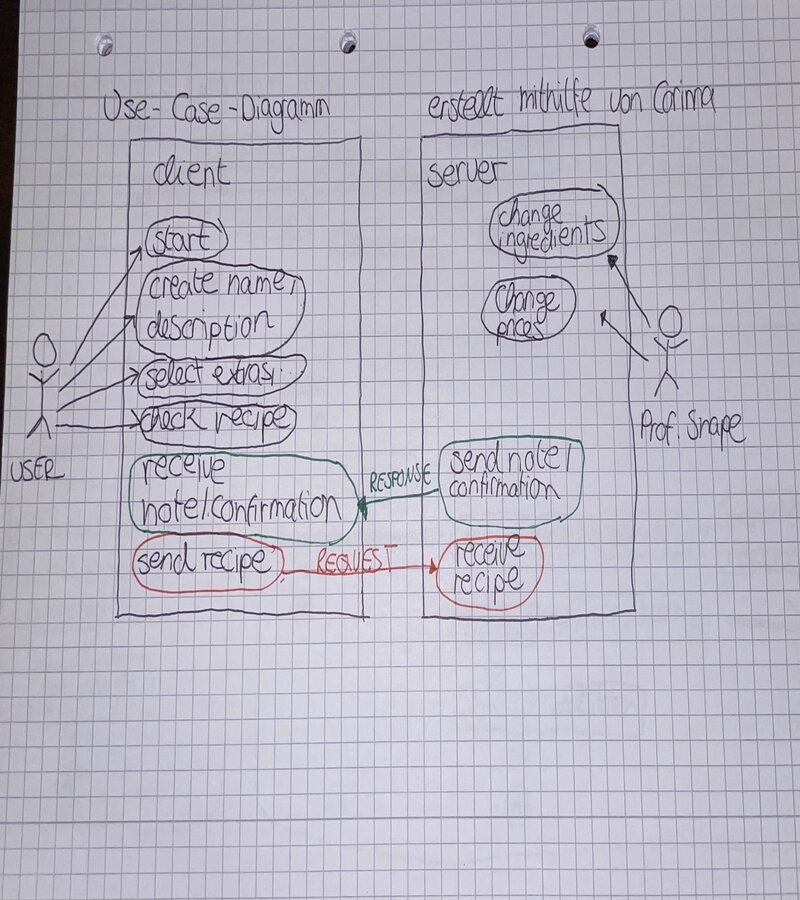 Use-Case-Diagramm
erstellt mithilfe von Corinna
client
start
create name,
description
select extras,..
check recipe
receive
note/confirmation
send recipe
USER
RESPONSE
REQUEST
server
change
ingredients
change
prices
send note/
confirmation
receive
recipe
Prof. Snape